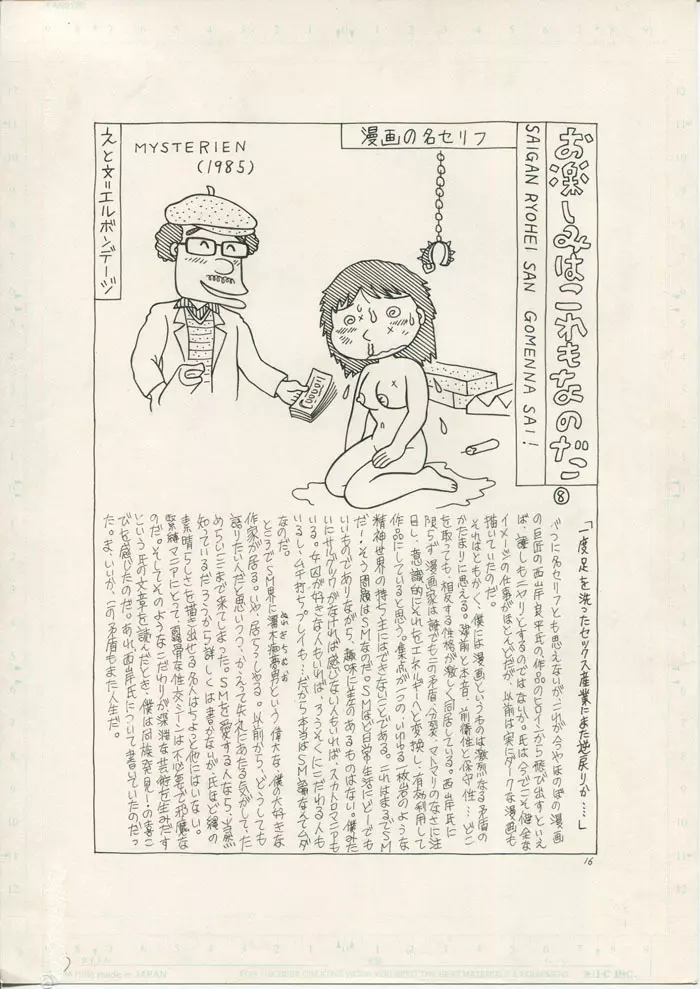 お楽しみはこれもなのだ
⑧
SAIGAN RYOHEI SAN GOMENNA SAI!
漫画の名セリフ
MYSTERIEN
(1985)
え と 文＝エルボンデージ
「一度足を洗ったセックス産業にまた逆戻りか……」
べつに名セリフとも思えないが、これが今やほのぼの漫画
の巨匠の西岸良平氏の作品のヒロインから飛び出すといえ
ば、誰しもニヤリとするのではないか。氏は今でこそ健全な
イメージの仕事がほとんどだが、以前は実にダークな漫画も
描いていたのだ。
それはともかく、僕には漫画というものは激烈なる矛盾の
かたまりに思える。建前と本音、前衛性と保守性…どこ
を取っても、相反する性格が激しく同居している。西岸氏に
限らず漫画家は誰でもこの矛盾、分裂、マトマリのなさに注
目し、意識的にそれをエネルギーへと変換し、有効利用して
作品にしていると思う。集点が一つの、いわゆる一枚岩のような
精神世界の持ち主にはできないことである。これはまるでSM
だ！そう、問題はSMなのだ。SMほど日常生活にどーでも
いいものでありながら、趣味に差のあるものはない。僕みた
いにサルグツワがなければ感じない人もいれば、スカトロマニアも
いる。女囚が好きな人もいれば、ろうそくにこだわる人も
いるし、ムチ打ちプレイも…だから本当はSM論なんてムダ
なのだ。
ところでSM界に濡木痴夢男という偉大な、僕の大好きな
作家が居る。いや、居らっしゃる。以前から、どうしても
語りたい人だと思いつつ、かえって失礼にあたる気がして、た
めらいここまで来てしまった。SMを愛する人なら、当然
知っているだろうから詳しくは書かないが、氏ほど縄の
素晴らしさを描き出せる名人はちょっと他にはいない。
緊縛マニアにとって、露骨な性交シーンは不必要で邪魔な
のだ。そしてそのようなこだわりが深淵な芸術を生みだす
という氏の文章を読んだとき、僕は同族発見！の喜こ
びを感じたのだ。あれ、西岸氏について書いていたのだっ
た。ま、いいか、この矛盾もまた人生だ。
16
made in JAPAN